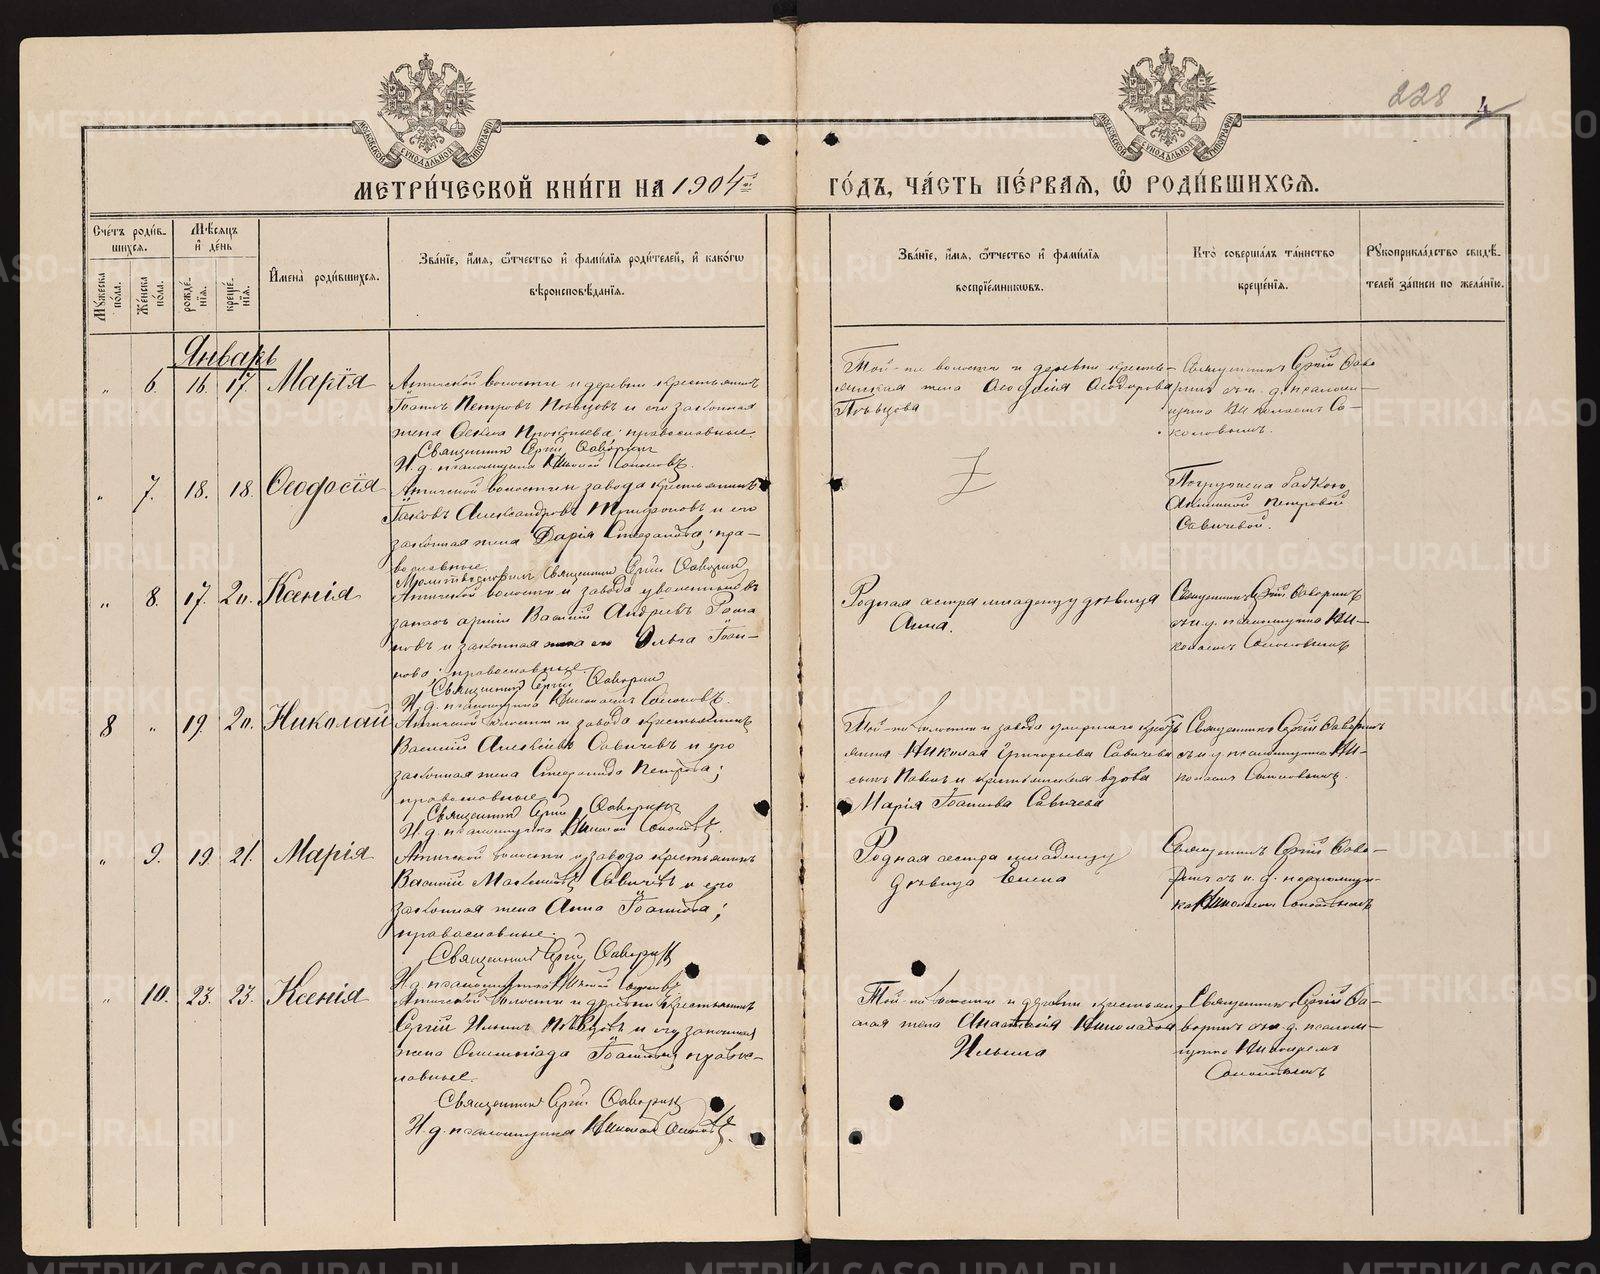 228 4
МОСКОВСКОЙ СѴНОДАЛЬНОЙ ТИПОГРАФІИ
МОСКОВСКОЙ СѴНОДАЛЬНОЙ ТИПОГРАФІИ
МЕТРИ́ЧЕСКОЙ КНИ́ГИ НА 1904й
ГО́ДЪ, ЧА́СТЬ ПЕ́РВАЯ, Ѡ҆ РОДИ́ВШИХСЯ.
Сче́тъ роди́в-
шихся.
Мꙋжеска по́ла.
Же́нска по́ла.
Мѣ́сяцъ
и҆ де́нь
рожде́-
нїя.
креще́-
нїя.
И҆мена̀ роди́вшихся.
Зва́нїе, и҆́мя, ѻ҆́тчество и҆ фами́лїя роди́телей, и҆ како́гѡ
вѣроисповѣ́данїя.
Зва́нїе, и҆́мя, ѻ҆́тчество и҆ фами́лїя
воспрїе́мникѡвъ.
Кто̀ соверша́лъ та́инство
креще́нїя.
Рꙋкоприкла́дство свидѣ́-
телей за́писи по жела́нїю.
Январь
" 6. 16. 17. Марія
Атигской волости и деревни крестьянинъ
Іоаннъ Петровъ и его законная
жена Прокопьева; православные.
Священникъ Сергій Фаворинъ
И. д. псаломщика Николай Соколовъ.
Той-же волости и деревни крестьян-
жена Феодорова
Священникъ Сергій Фаво-
ринъ съ и. д. псалом-
щика Николаемъ Со-
коловымъ.
" 7. 18. 18. Феодосія
Атигской волости и завода крестьянинъ
Іаковъ Александровъ Трифоновъ и его
законная жена Дарія Стефанова; пра-
вославные.
Священникъ Сергій Фаворин
Погружена бабкою
Петровой
Савичевой.
" 8. 17. 20. Ксенія
Атигской волости и завода уволенный въ
запасъ арміи Василій Андреевъ Рома
новъ и законная жена его Ольга Іоан-
нова; православные.
Священникъ Сергій Фаворин
И. д. псаломщика Николай Соколовъ.
Родная сестра младенцу дѣвица
Анна.
Священникъ Сергій Фаворинъ
съ и. д. псаломщика Ни-
колаемъ Соколовымъ
8 " 19. 20. Николай
Атигской волости и завода крестьянинъ
Василій Алексѣевъ Савичевъ и его
законная жена Стефанида Петрова;
православные
Священникъ Сергій Фаворинъ
И. д. псаломщика Николай Соколовъ.
Той-же волости и завода умершаго кресть
янина Николая Григорьева Савичева
сынъ Павелъ и крестьянская вдова
Марія Іоаннова Савичева
Священникъ Сергій Фаворинъ
съ и. д. псаломщика Ни-
колаемъ Соколовымъ.
" 9. 19. 21. Марія
Атигской волости и завода крестьянинъ
Василій Савичевъ и его
законная жена Анна Іоаннова;
православные.
Священникъ Сергій Фаворин
И. д. псаломщика Николай Соколовъ
Родная сестра младенцу
дѣвица Елена
Священникъ Сергій Фаво-
ринъ съ и. д. псаломщи-
ка Николаемъ Соколовымъ
" 10. 23. 23. Ксенія
Атигской волости и деревни крестьянинъ
Сергій Ильинъ и его законная
жена Олимпіада Іоаннова; правос-
лавные.
Священникъ Сергій Фаворин
И. д. псаломщика Николай Соколовъ.
Той-же волости и деревни крестьян
ская жена Анастасія Николаева
Ильина
Священникъ Сергій Фа-
воринъ съ и. д. псалом-
щика Николаемъ
Соколовымъ
METRIKI.GASO-URAL.RU